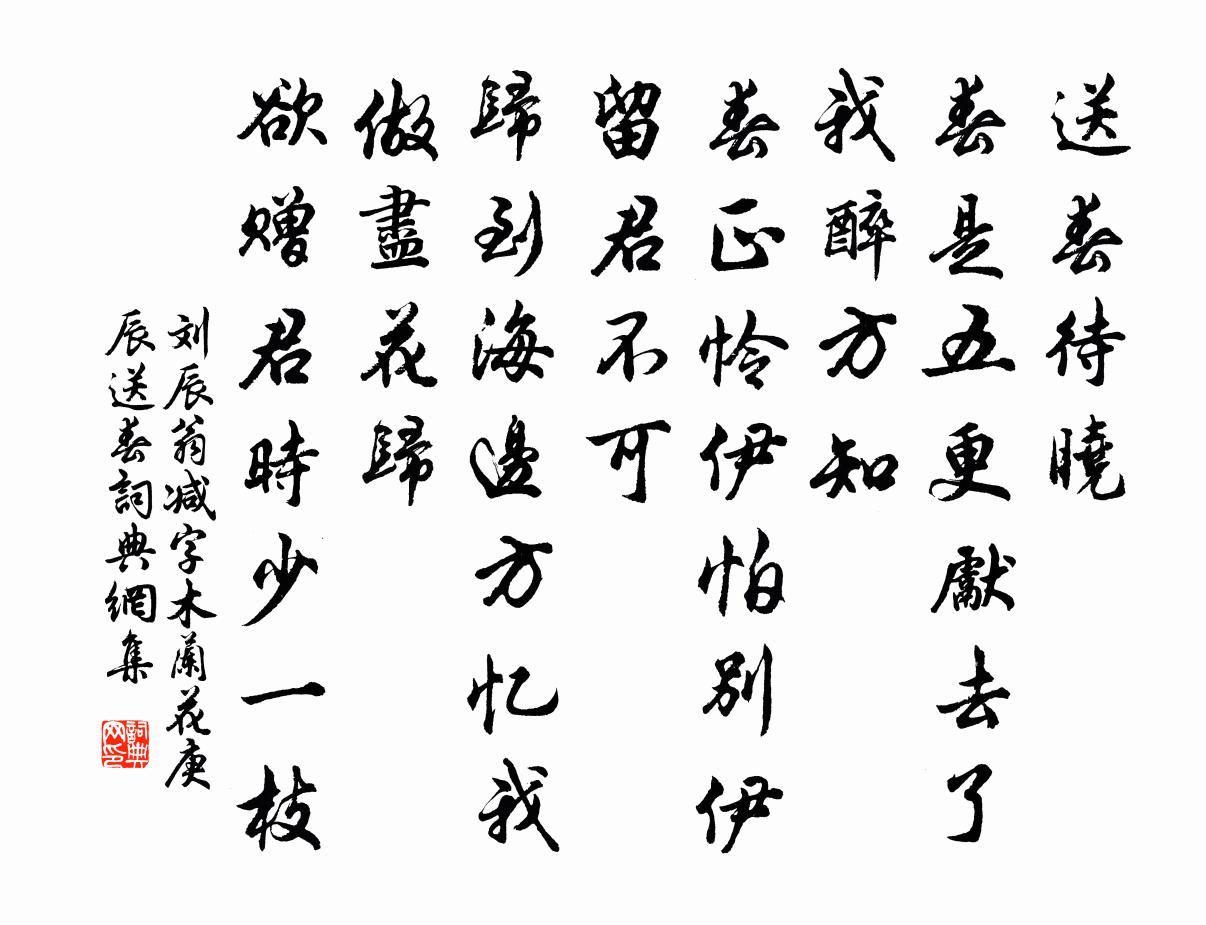 送春待曉
春是五更獻去了
我醉方知
春正怜伊怕别伊
留君不可
歸到海邊方忆我
做盡花歸
欲赠君時少一枝
刘辰翁减字木蘭花庚
辰送春詞典網集
詞典
网印